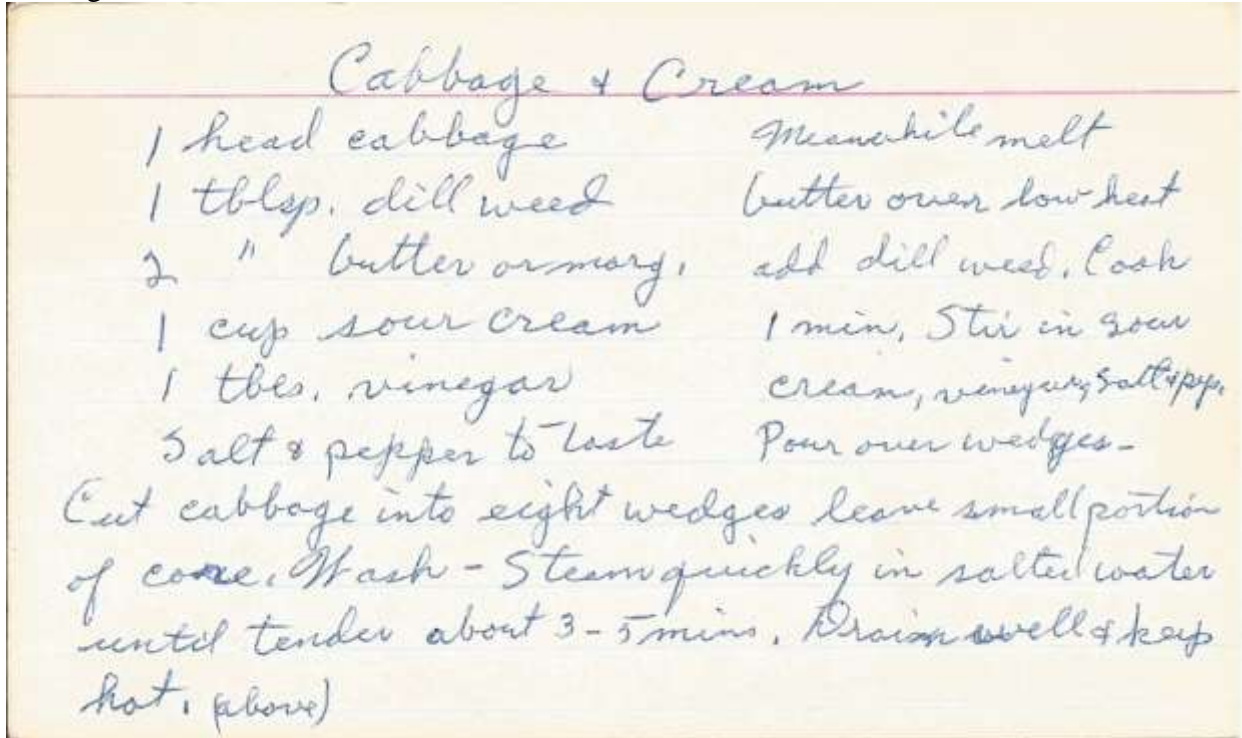 Cabbage & Cream
1 head cabbage
1 tblsp. dill weed
2 " butter or marg.
1 cup sour cream
1 tbls. vinegar
Salt & pepper to taste
Cut cabbage into eight wedges leave small portion
of core. Wash - Steam quickly in salted water
until tender about 3-5 mins. Drain well & keep
hot. (above)
Meanwhile melt
butter over low heat
add dill weed. Cook
1 min. Stir in sour
cream, vinegar, salt & pep.
Pour over wedges -